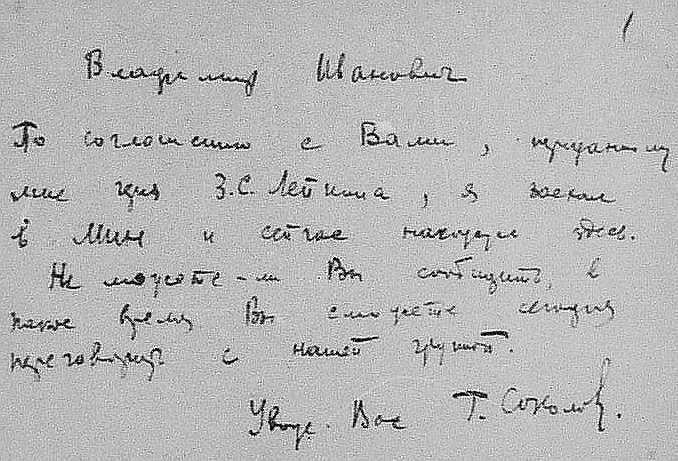 1
Владимир Иванович
По соглашению с Вами, переданному
мне З.С. Лейкина, я заехал
в Минск и сейчас нахожусь здесь.
Не можете-ли Вы сообщить, в
какое время Вы сможете сегодня
переговорить с нашей группой.
Уваж. Вас Т. Соколов.